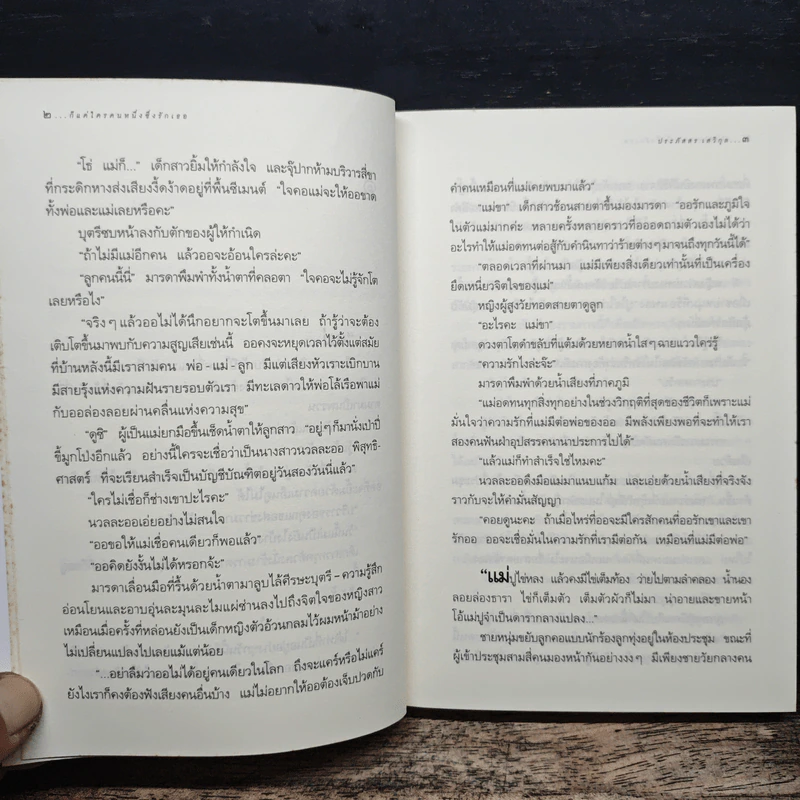 ๒ ...ก็แค่ใครคนหนึ่งซึ่งรักเธอ
"โธ่ แม่ก็..." เด็กสาวยิ้มให้กำลังใจ และจุ๊ปากห้ามบริวารสี่ขา
ที่กระดิกหางส่งเสียงงี้ดง้าดอยู่ที่พื้นซีเมนต์ "ใจคอแม่จะให้ออขาด
ทั้งพ่อและแม่เลยหรือคะ"
บุตรีซบหน้าลงกับตักของผู้ให้กำเนิด
"ถ้าไม่มีแม่อีกคน แล้วออจะอ้อนใครล่ะคะ"
"ลูกคนนี้นี่" มารดาพึมพำทั้งน้ำตาที่คลอตา "ใจคอจะไม่รู้จักโต
เลยหรือไง"
"จริงๆ แล้วออไม่ได้นึกอยากจะโตขึ้นมาเลย ถ้ารู้ว่าจะต้อง
เติบโตขึ้นมาพบกับความสูญเสียเช่นนี้ ออคงจะหยุดเวลาไว้ตั้งแต่สมัย
ที่บ้านหลังนี้มีเราสามคน พ่อ-แม่-ลูก มีแต่เสียงหัวเราะเบิกบาน
มีสายรุ้งแห่งความฝันรายรอบตัวเรา มีทะเลดาวให้พ่อไล้เรือพาแม่
กับออล่องลอยผ่านคลื่นแห่งความสุข"
"ดูซิ" ผู้เป็นแม่ยกมือขึ้นเช็ดน้ำตาให้ลูกสาว "อยู่ๆ ก็มานั่งเป่าปี่
ขี้มูกโป่งอีกแล้ว อย่างนี้ใครจะเชื่อว่าเป็นนางสาวนวลละออ พิสุทธิ-
ศาสตร์ ที่จะเรียนสำเร็จเป็นบัญชีบัณฑิตอยู่วันสองวันนี้แล้ว"
"ใครไม่เชื่อก็ช่างเขาปะไรคะ"
นวลละออเอ่ยอย่างไม่สนใจ
"ออขอให้แม่เชื่อคนเดียวก็พอแล้ว"
"ออคิดยังงั้นไม่ได้หรอกจ้ะ"
มารดาเลื่อนมือที่รื้นด้วยน้ำตามาลูบไล้ศีรษะบุตรี – ความรู้สึก
อ่อนโยนและอาบอุ่นละมุนละไมแผ่ซ่านลงไปถึงจิตใจของหญิงสาว
เหมือนเมื่อครั้งที่หล่อนยังเป็นเด็กหญิงตัวอ้วนกลมไว้ผมหน้าม้าอย่าง
ไม่เปลี่ยนแปลงไปเลยแม้แต่น้อย
"...อย่าลืมว่าออไม่ได้อยู่คนเดียวในโลก ถึงจะแคร์หรือไม่แคร์
ยังไงเราก็คงต้องฟังเสียงคนอื่นบ้าง แม่ไม่อยากให้ออต้องเจ็บปวดกับ
ประภัสสร เสวิกุล...๓
คำคนเหมือนที่แม่เคยพบมาแล้ว"
"แม่ขา" เด็กสาวช้อนสายตาขึ้นมองมารดา "ออรักและภูมิใจ
ในตัวแม่มากค่ะ หลายครั้งหลายคราวที่อออดถามตัวเองไม่ได้ว่า
อะไรทำให้แม่อดทนต่อสู้กับคำนินทาว่าร้ายต่างๆ มาจนถึงทุกวันนี้ได้"
"ตลอดเวลาที่ผ่านมา แม่มีเพียงสิ่งเดียวเท่านั้นที่เป็นเครื่อง
ยึดเหนี่ยวจิตใจของแม่"
หญิงผู้สูงวัยทอดสายตาดูลูก
"อะไรคะ แม่ขา"
ดวงตาโตดำขลับที่แต้มด้วยหยาดน้ำใสๆ ฉายแววใคร่รู้
"ความรักไงล่ะจ๊ะ"
มารดาพึมพำด้วยน้ำเสียงที่ภาคภูมิ
"แม่อดทนทุกสิ่งทุกอย่างในช่วงวิกฤติที่สุดของชีวิตก็เพราะแม่
มั่นใจว่าความรักที่แม่มีต่อพ่อของออ มีพลังเพียงพอที่จะทำให้เรา
สองคนฟันฝ่าอุปสรรคนานาประการไปได้"
"แล้วแม่ก็ทำสำเร็จใช่ไหมคะ"
นวลละออดึงมือแม่มาแนบแก้ม และเอ่ยด้วยน้ำเสียงที่จริงจัง
ราวกับจะให้คำมั่นสัญญา
"คอยดูนะคะ ถ้าเมื่อไหร่ที่ออจะมีใครสักคนที่ออรักเขาและเขา
รักออ ออจะเชื่อมั่นในความรักที่เรามีต่อกัน เหมือนที่แม่มีต่อพ่อ"
"แม่ปูไข่หลง แล้วคงมีไข่เต็มท้อง ว่ายไปตามลำคลอง น้ำนอง
ลอยล่องธารา ไข่ก็เต็มตัว เต็มตัวผัวก็ไม่มา น่าอายและขายหน้า
โอ้แม่ปูจำเป็นดารากลางแปลง..."
ชายหนุ่มขยับลูกคอแบบนักร้องลูกทุ่งอยู่ในห้องประชุม ขณะที่
ผู้เข้าประชุมสามสี่คนมองหน้ากันอย่างงงๆ มีเพียงชายวัยกลางคน